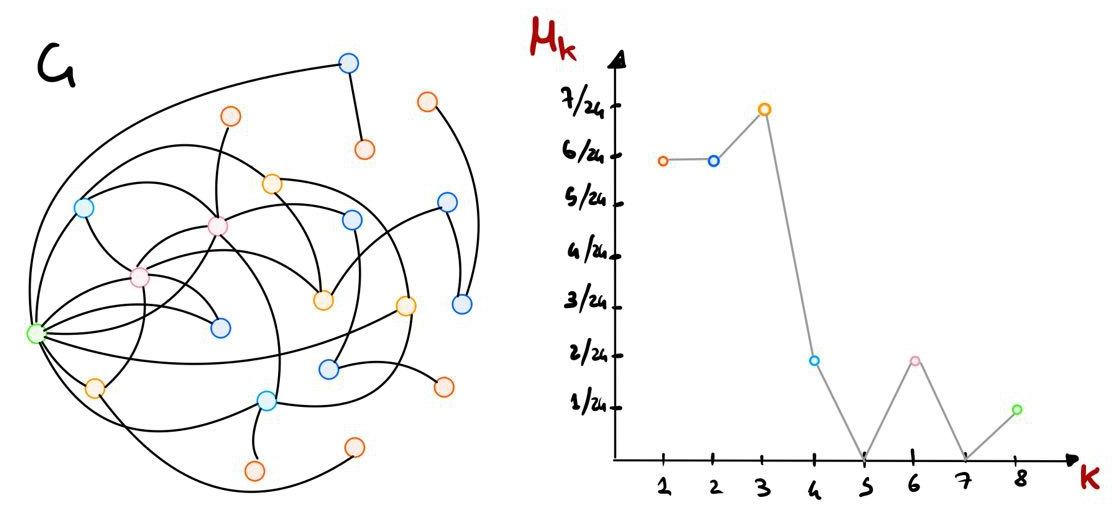 G
μk
7/24
6/24
5/24
4/24
3/24
2/24
1/24
1 2 3 4 5 6 7 8
k